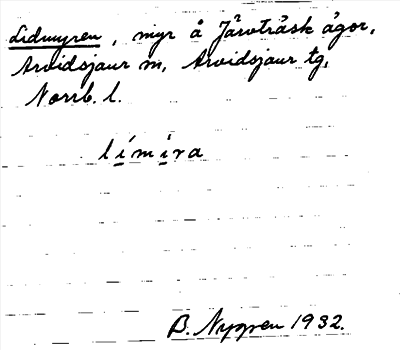 Lidmyren, myr å Järvträsk ägor,
Arvidsjaur sn, Arvidsjaur tg,
Norrb. l.
límira
B. Nygren 1932.